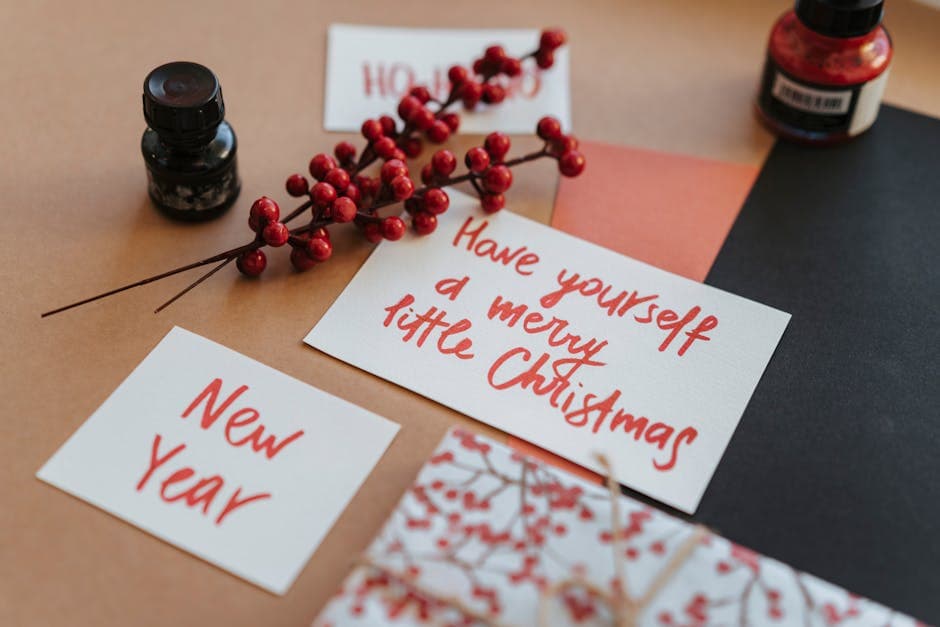 HO-HO-HO
Have yourself
a merry
little Christmas
New
Year